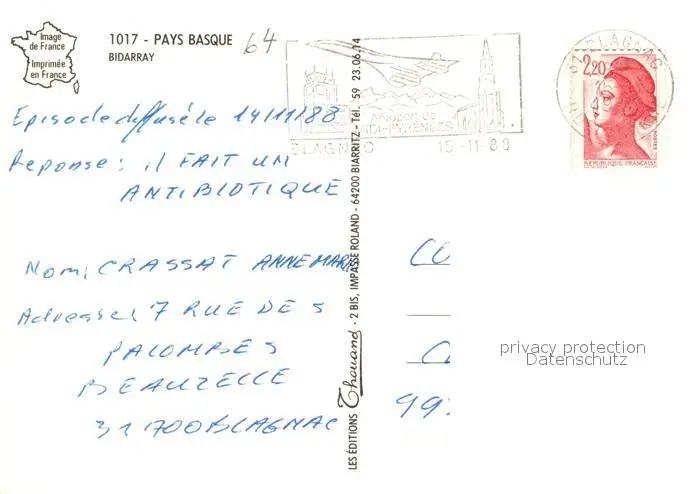 Image
de France
Imprimée
en France
1017 - PAYS BASQUE
BIDARRAY
64
BLAGNAC 15-11-88
MIDI-PYRENEES
BLAGNAC
2,20
REPUBLIQUE FRANÇAISE
Episode diffusé le 14/11/88
Reponse : il FAIT UN
ANTIBIOTIQUE
Nom: CRASSAT ANNE MARIE
Adresse: 7 RUE DES
PALOMBES
BEAUZELLE
31700 BLAGNAC
LES EDITIONS Thouand - 2 BIS, IMPASSE ROLAND - 64200 BIARRITZ - Tél. 59 23.06.14
CO
C
99
privacy protection
Datenschutz